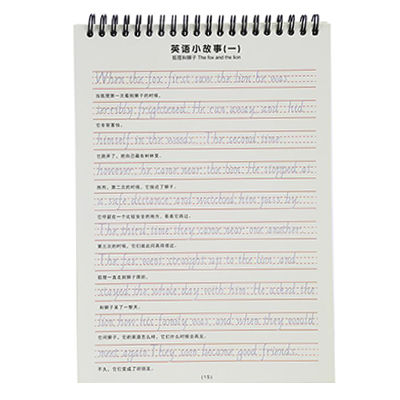 英语小故事(一)
狐狸和狮子 The fox and the lion
When the fox first saw the lion he was
当狐狸第一次看到狮子的时候，
terribly frightened. He ran away and hid
它非常害怕。
himself in the woods. The second time,
它跑开了，把自己藏在树林里。
however he came near the lion. He stopped at
然而，第二次的时候，它接近了狮子。
a safe distance and watched him pass by.
它停留在一个比较安全的地方，看着它路过。
The third time they came near one another.
第三次的时候，它们彼此间真得很近。
The fox went straight up to the lion and
狐狸一直走到狮子跟前，
stayed the whole day with him. He asked the
和狮子呆了一整天。
lion how his family was and when they would
它问狮子，它的家庭怎么样，它们什么时候会再见。
meet again they soon became good friends.
不久，它们变成了好朋友。
(15)